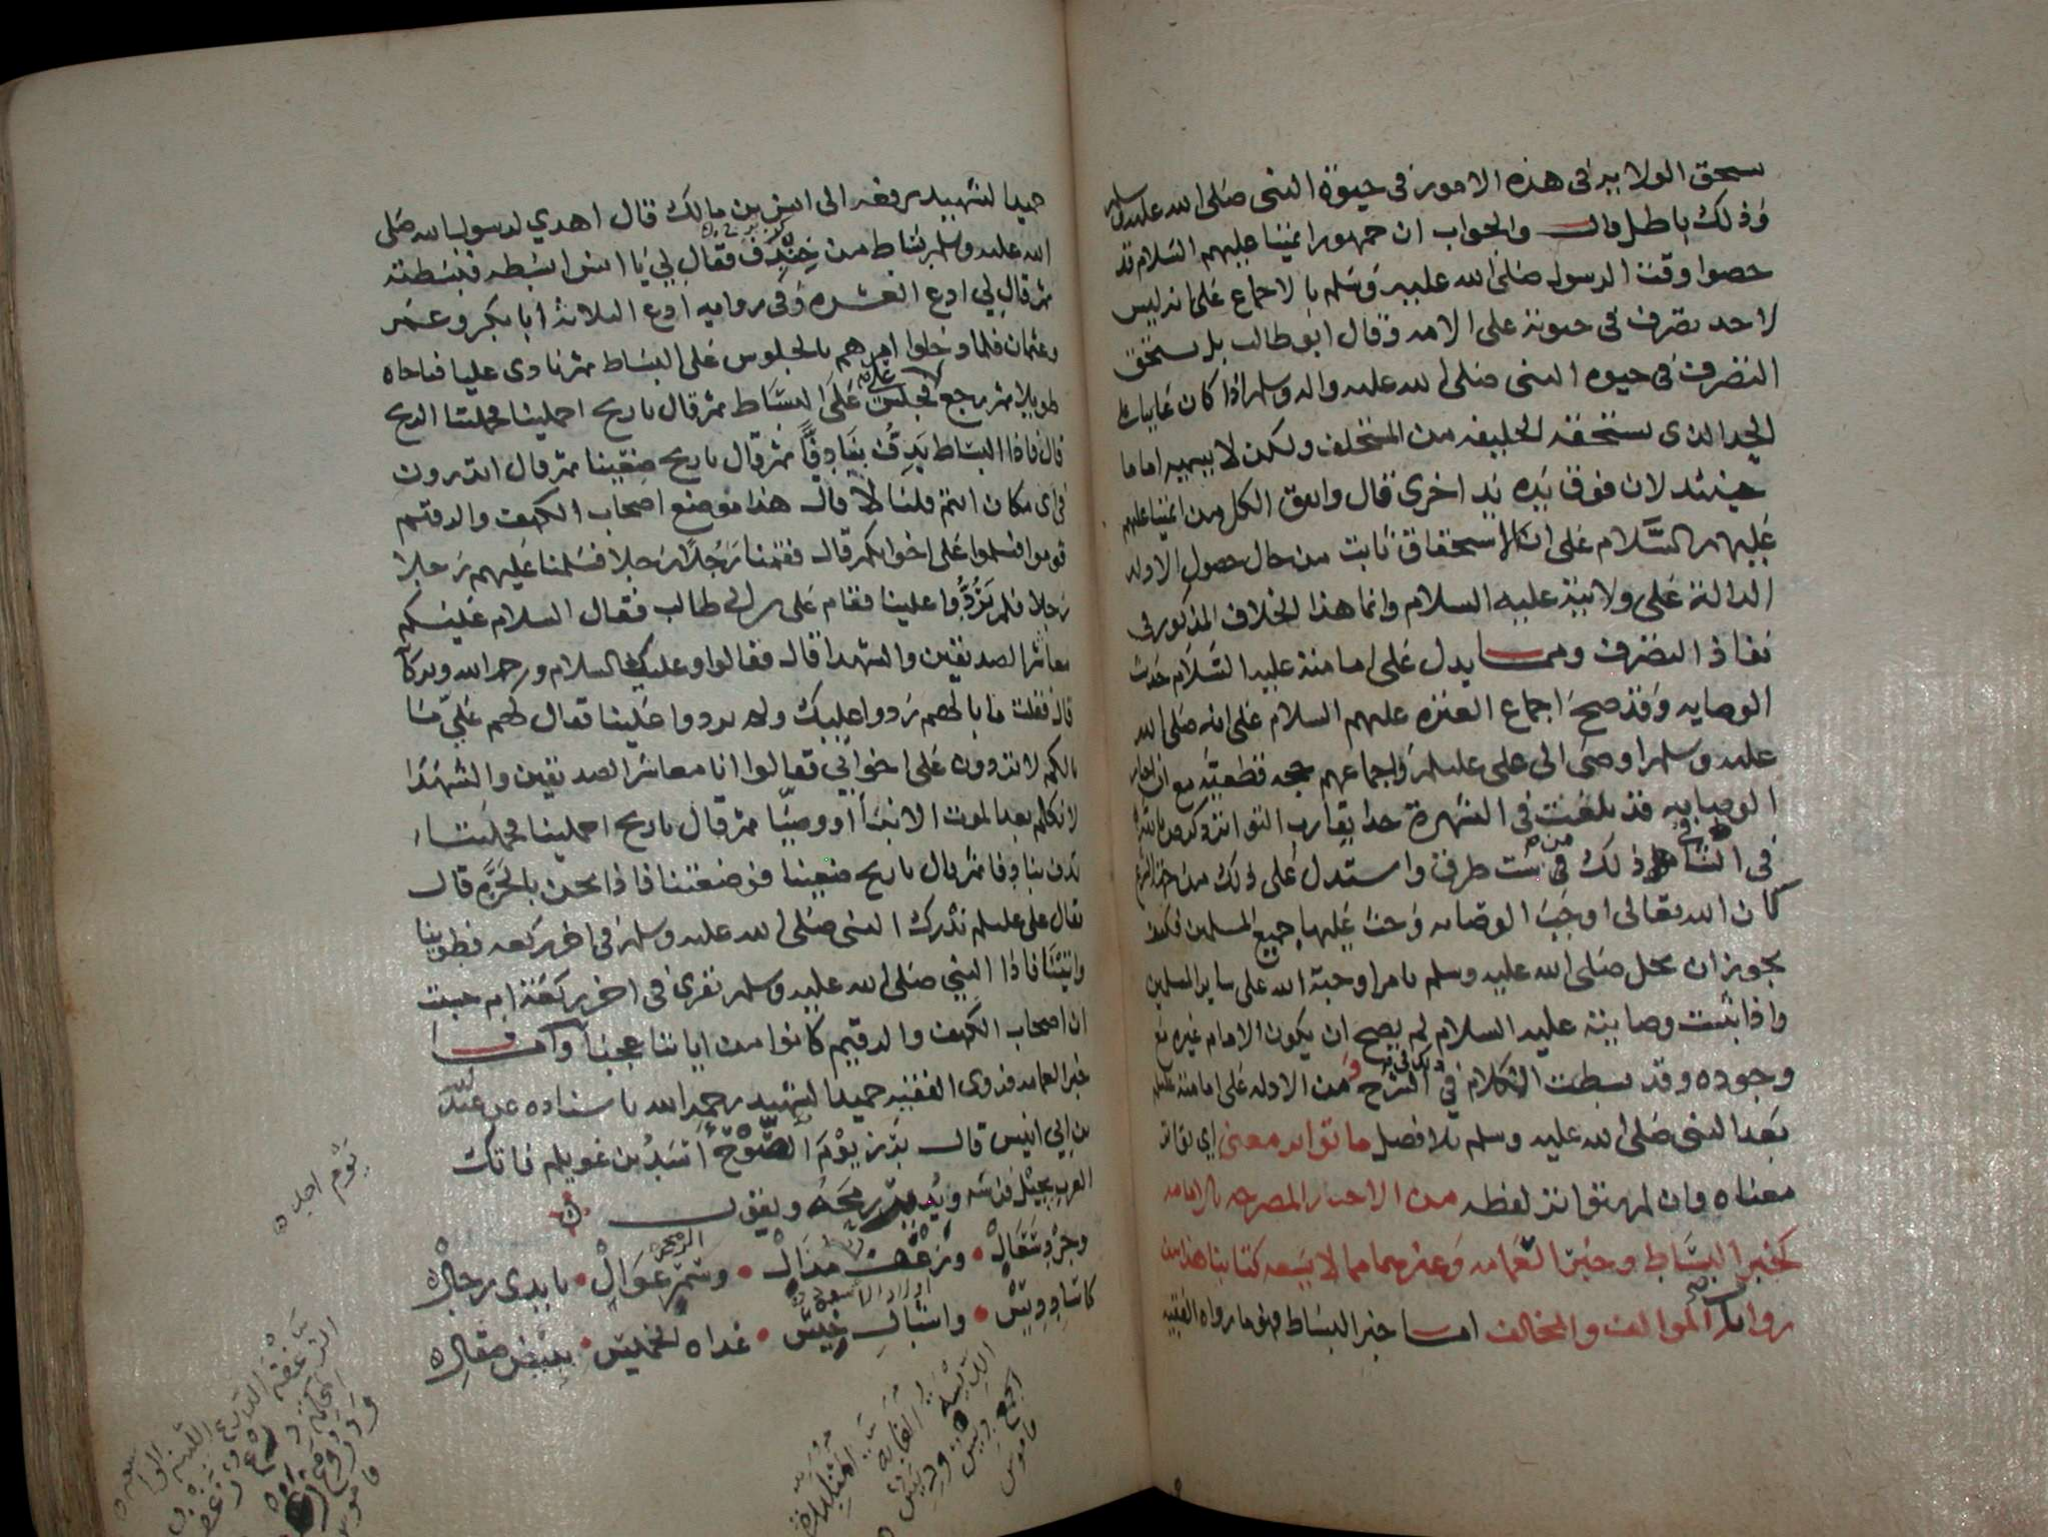 يستحق الولاية في هذه الامور في حيوة النبي صلى الله عليه وسلم
وذلك باطل قال والجواب ان جمهور ائمتنا عليهم السلام قد
خصوا وقت الرسول صلى الله عليه وسلم بالاجماع على انه ليس
لاحد تصرف في حيوته على الامة وقال ابو طالب بل يستحق
التصرف في حيوة النبي صلى الله عليه واله وسلم اذا كان غايبا على
الحد الذي يستحقه الخليفه من المستخلف ولكن لا يسميه اماما
حينئذ لان فوق يده يد اخرى قال واتفق الكل من ائمتنا عليهم
عليهم السلام على ان الاستحقاق ثابت من حال حصول الادلة
الدالة على ولايته عليه السلام وانما هذا الخلاف المذكور في
نفاذ التصرف ومما يدل على امامته عليه السلام حديث
الوصايه وقد صح اجماع العترة عليهم السلام على انه صلى الله
عليه وسلم اوصى الى علي عليلم واجماعهم حجه قطعيه مع ان اخبار
الوصايه قد بلغت في الشهرة حدا يقارب التواتر
في الشافي ذلك من ست طرق واستدل على ذلك من
كان الله تعالى اوجب الوصايه وحث عليها جميع المسلمين فكيف
يجوز ان يخل صلى الله عليه وسلم بامر اوجبه الله على ساير المسلمين
واذا ثبت وصايته عليه السلام لم يصح ان يكون الامام غيره مع
وجوده وقد بسطت الكلام في ذلك في الشرح ومن الادله على امامته عليلم
بعد النبي صلى الله عليه وسلم بلا فصل ما تواتر معنى اي تواتر
معناه وان لم يتواتر لفظه من الاخبار المصرحه بالامامه
كخبر البساط وخبر العمامه وغيرهما مما لا يسعه كتابنا هذا من
روايات الموالف والمخالف اما خبر البساط فهو ما رواه الفقيه
حميد الشهيد يرفعه الى انس بن مالك قال اهدي لرسول الله صلى
الله عليه وسلم بساط من خندف فقال لي يا انس ابسطه فبسطته
ثم قال لي ادع العشره وفي روايه ادع الثلاثة ابا بكر وعمر
وعثمان فلما دخلوا امرهم بالجلوس على البساط ثم نادى عليا فناجاه
طويلا ثم رجع علي فجلس على البساط ثم قال يا ريح احملينا فحملتنا الريح
قال فاذا البساط يدف بنا دفا ثم قال يا ريح ضعينا ثم قال اتدرون
في اي مكان انتم قلنا لا قال هذا موضع اصحاب الكهف والرقيم
قوموا فسلموا على اخوانكم قال فقمنا رجلا رجلا فسلمنا عليهم رجلا
رجلا فلم يردوا علينا فقام علي بن ابي طالب فقال السلام عليكم
معاشر الصديقين والشهدا قال فقالوا وعليك السلام ورحمة الله وبركاته
قال فقلت ما بالهم ردوا عليك ولم يردوا علينا فقال لهم علي ما
بالكم لا تردون على اخواني فقالوا انا معاشر الصديقين والشهدا
لا نكلم بعد الموت الا نبيا او وصيا ثم قال يا ريح احملينا فحملتنا
تدف بنا دفا ثم قال يا ريح ضعينا فوضعتنا فاذا نحن بالحرة قال
فقال علي عليلم ندرك النبي صلى الله عليه وسلم في اخر ركعه فطوينا
واتينا فاذا النبي صلى الله عليه وسلم يقرئ في اخر ركعة ام حسبت
ان اصحاب الكهف والرقيم كانوا من اياتنا عجبا واما
خبر العمامه فروى الفقيه حميد الشهيد رحمه الله باسناده عن عبد الله
بن ابي انيس قال برز يوم الصوح اسد بن غويلم فاتك
العرب يجيل فرسه ويدير رمحه ويقول
وجرد شعال • وزغف مذال • وسمر عوال • بايدي رجال
كاساد ديس • واشبال خيس • غداة الخميس • ببيض صقال
يوم احد